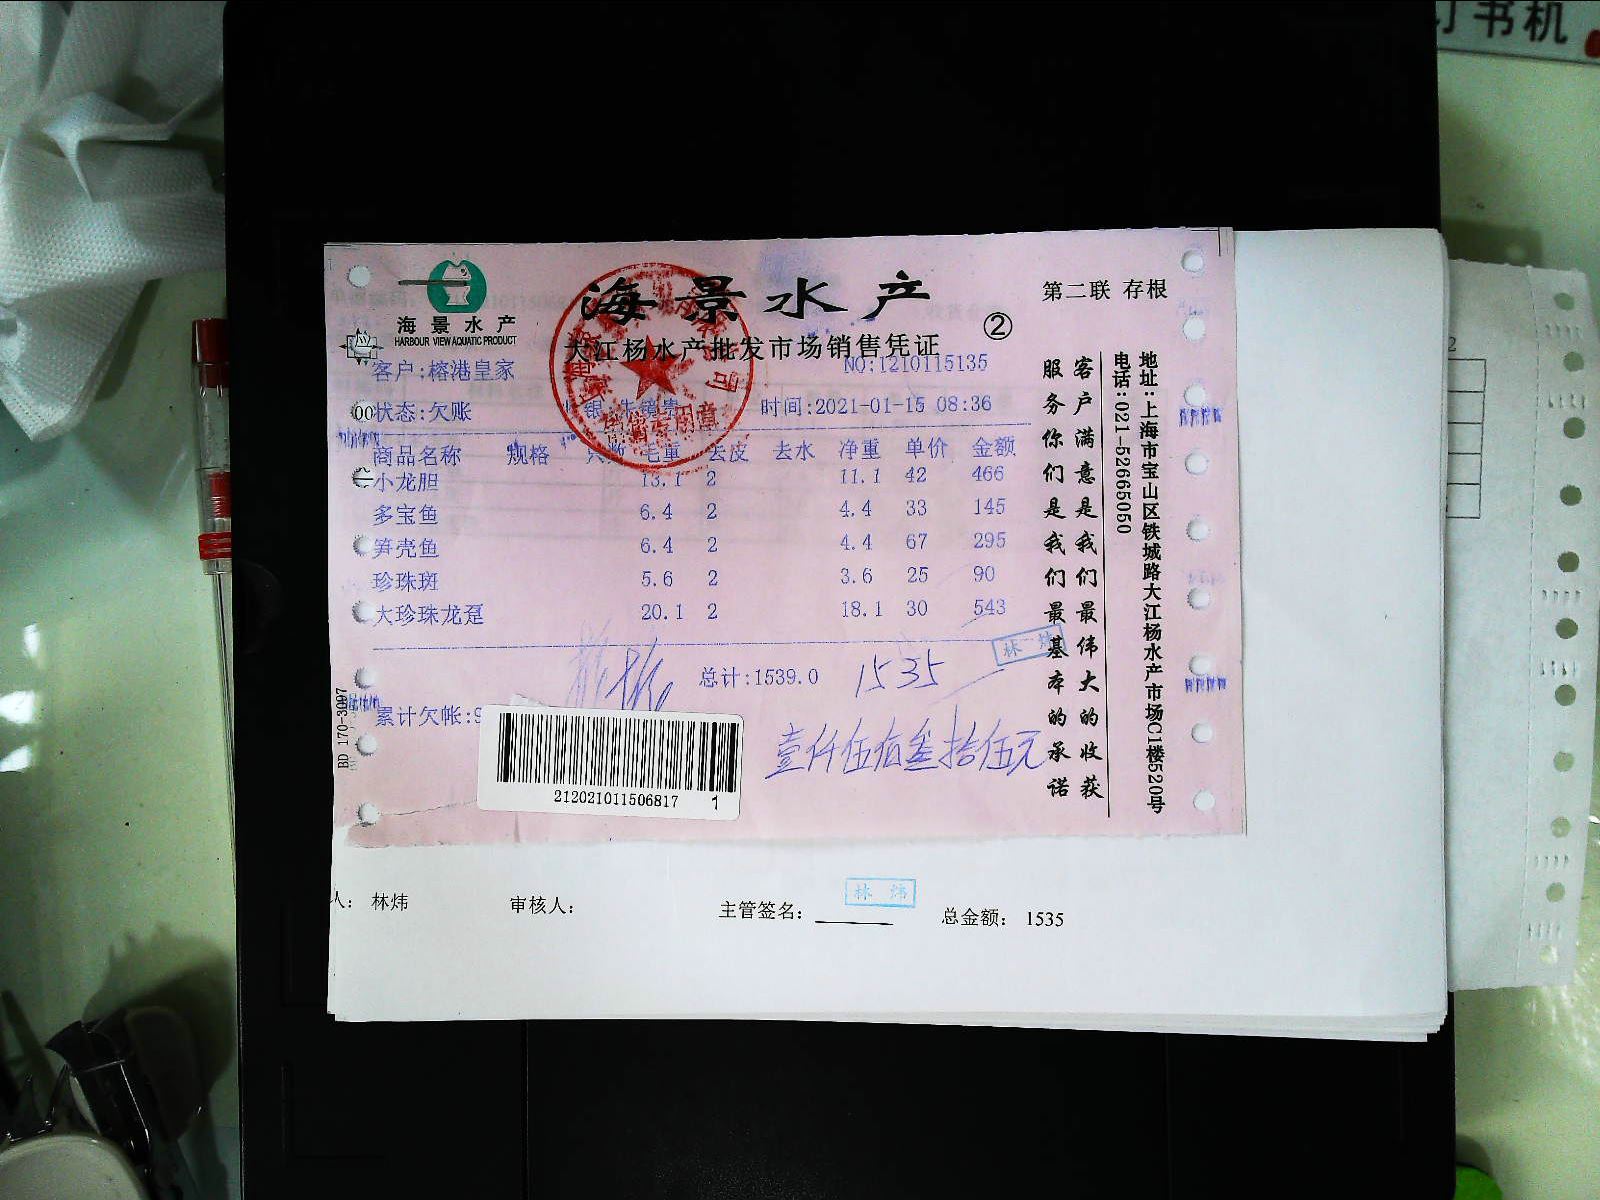 订书机
海景水产
HARBOUR VIEW AQUATIC PRODUCT
海景水产
大江杨水产批发市场销售凭证
②
第二联 存根
客户:榕港皇家
NO:1210115135
状态:欠账
时间:2021-01-15 08:36
商品名称 规格 只数 毛重 去皮 去水 净重 单价 金额
小龙胆 13.1 2 11.1 42 466
多宝鱼 6.4 2 4.4 33 145
笋壳鱼 6.4 2 4.4 67 295
珍珠斑 5.6 2 3.6 25 90
大珍珠龙趸 20.1 2 18.1 30 543
总计:1539.0
1535
林炜
累计欠帐:9
壹仟伍佰叁拾伍元
212021011506817 1
BD 170-3097
客户满意是我们最伟大的收获
服务你们是我们最基本的承诺
地址:上海市宝山区铁城路大江杨水产市场C1楼520号
电话:021-52665050
人: 林炜
审核人:
主管签名:
林炜
总金额: 1535